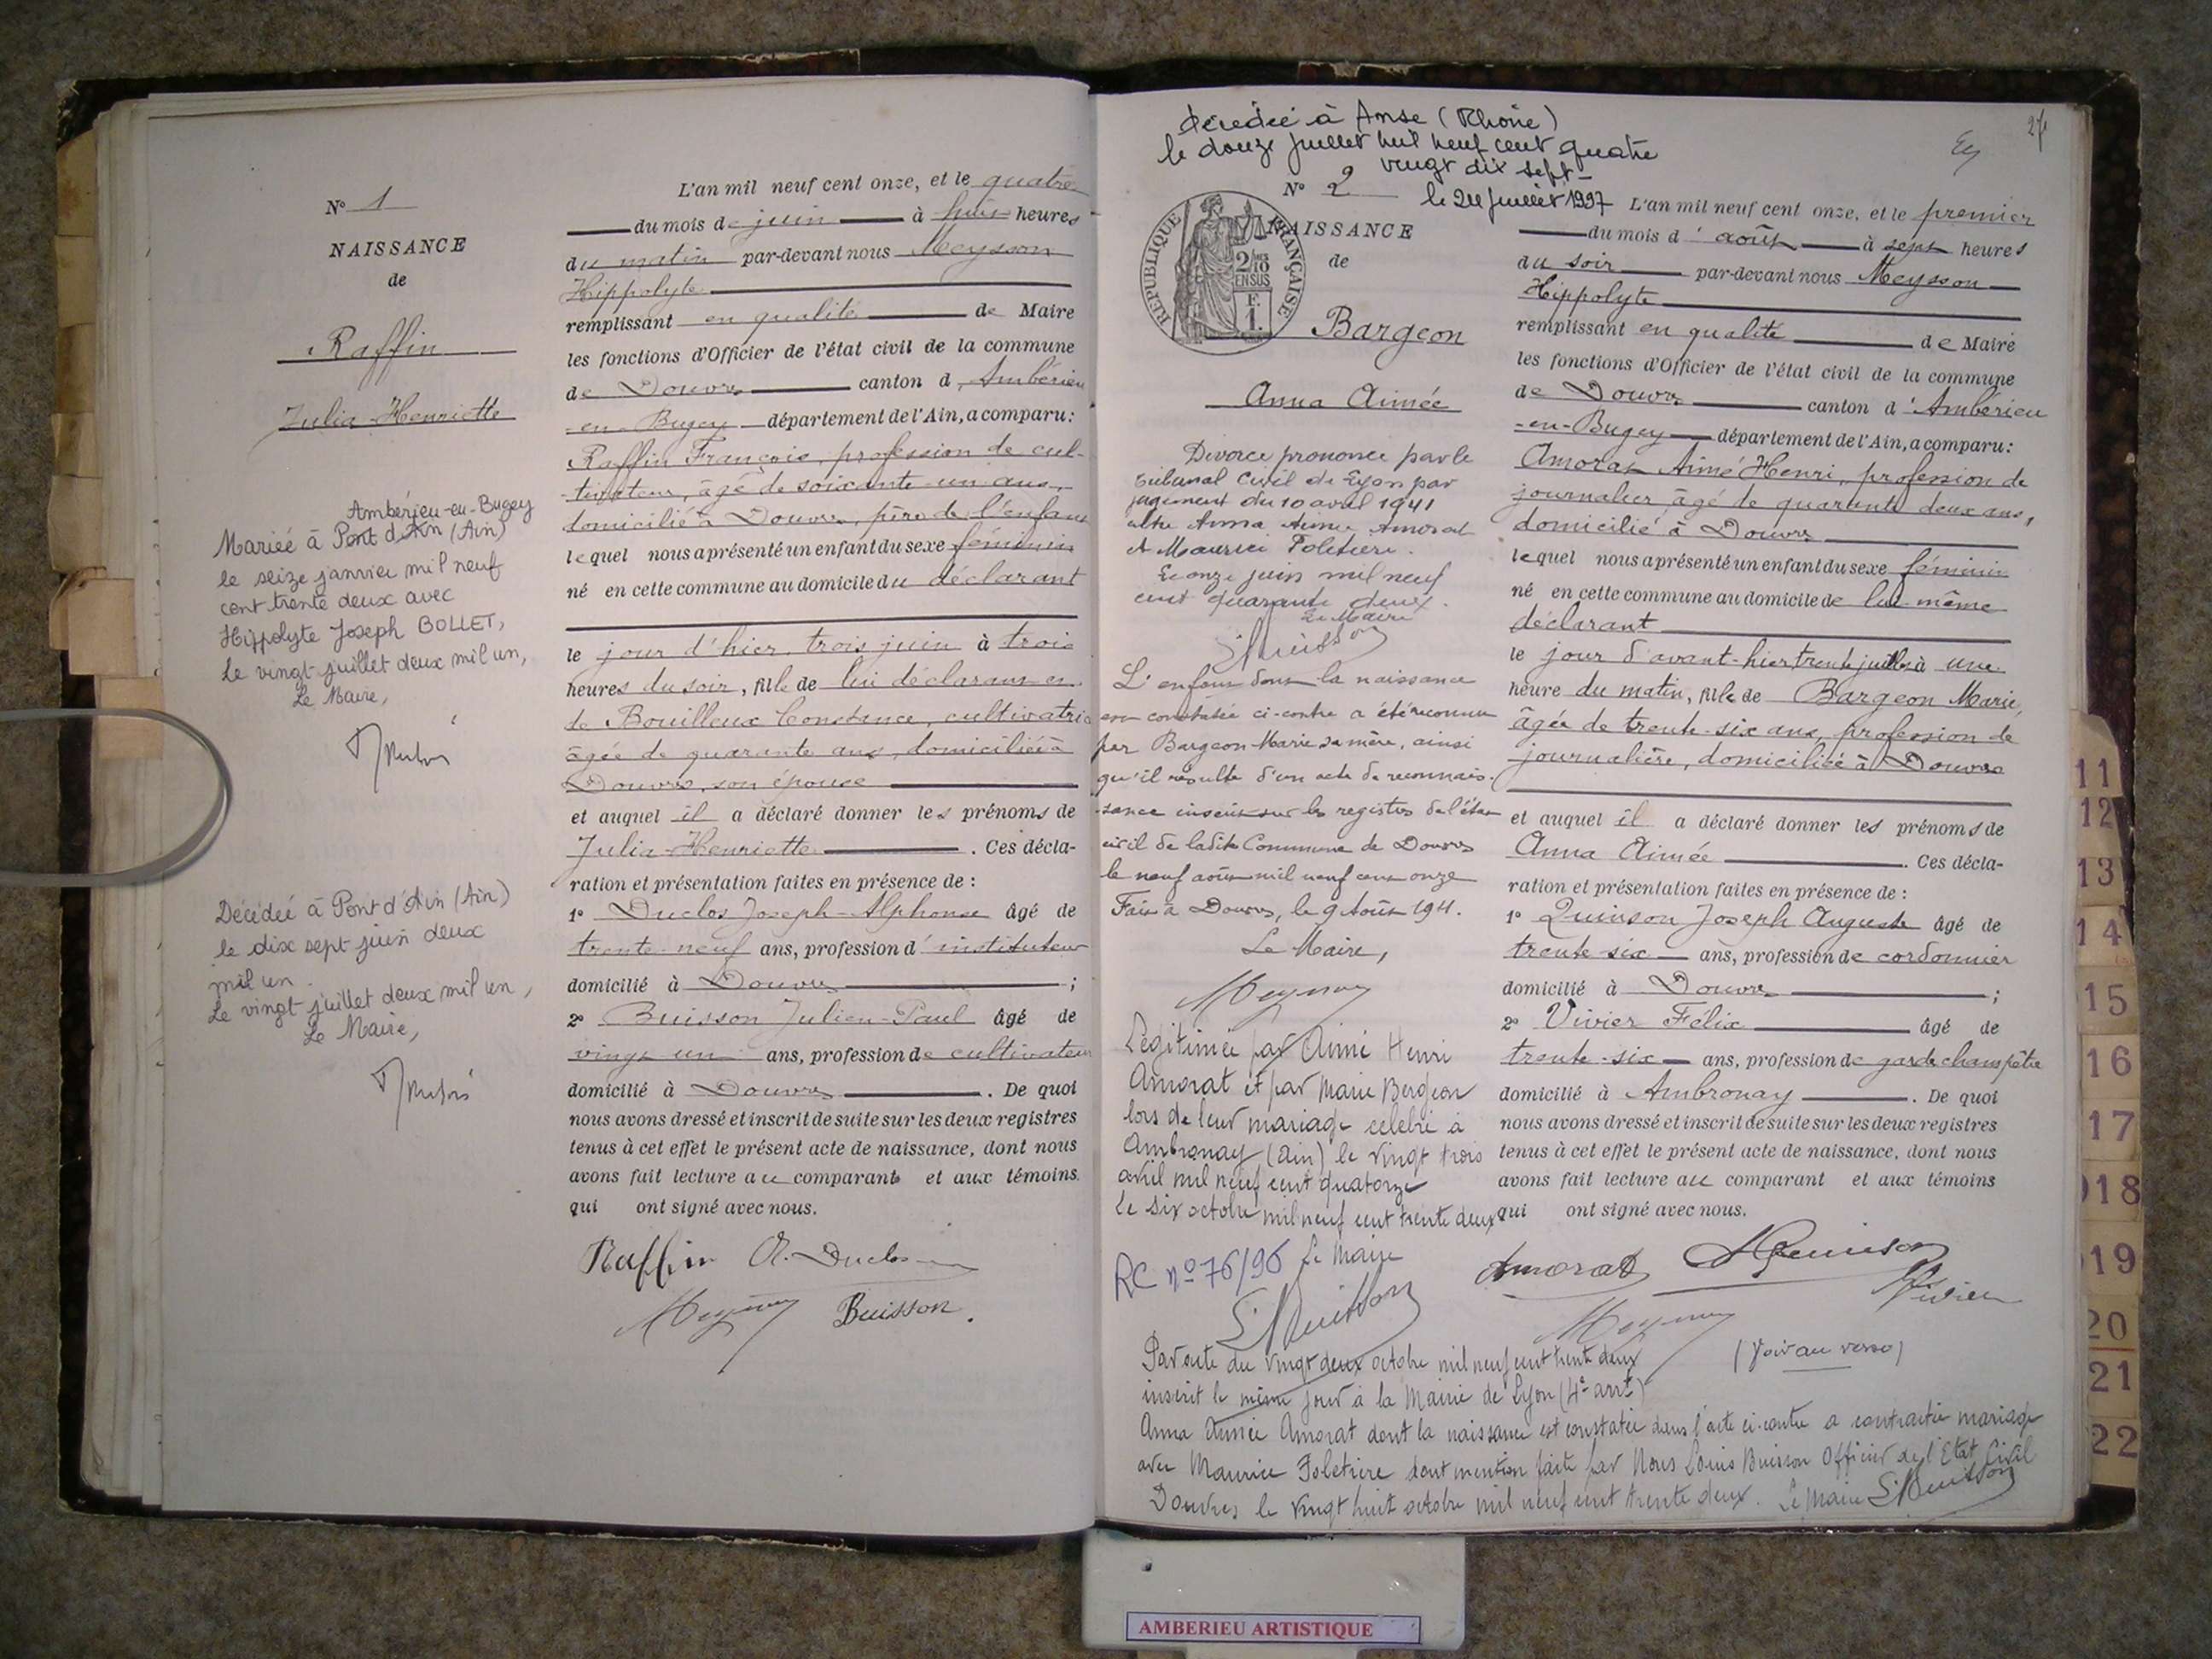 N° 1
NAISSANCE
de
Raffin
Julia-Henriette
Ambérieu-en-Bugey
Mariée à Pont d'Ain (Ain)
le seize janvier mil neuf
cent trente deux avec
Hippolyte Joseph BOLLET,
Le vingt juillet deux mil un,
Le Maire,
Décédée à Pont d'Ain (Ain)
le dix sept juin deux
mil un.
Le vingt juillet deux mil un,
Le Maire,
L'an mil neuf cent onze, et le quatre
du mois de juin à huit heures
du matin par-devant nous Meysson
Hippolyte
remplissant en qualité de Maire
les fonctions d'Officier de l'état civil de la commune
de Douvres canton d'Ambérieu
-en-Bugey département de l'Ain, a comparu:
Raffin François, profession de cul-
tivateur, âgé de soixante-un ans,
domicilié à Douvres, père de l'enfant
lequel nous a présenté un enfant du sexe féminin
né en cette commune au domicile du déclarant
le jour d'hier, trois juin à trois
heures du soir, fille de lui déclarant et
de Bouilloux Constance, cultivatrice
âgée de quarante ans, domiciliée à
Douvres, son épouse
et auquel il a déclaré donner les prénoms de
Julia-Henriette. Ces décla-
ration et présentation faites en présence de :
1° Duclos Joseph-Alphonse âgé de
trente-neuf ans, profession d'instituteur
domicilié à Douvres ;
2° Buisson Julien-Paul âgé de
vingt un ans, profession de cultivateur
domicilié à Douvres. De quoi
nous avons dressé et inscrit de suite sur les deux registres
tenus à cet effet le présent acte de naissance, dont nous
avons fait lecture au comparant et aux témoins
qui ont signé avec nous.
Raffin A. Duclos
Meysson Buisson.
décédée à Anse (Rhône)
le douze juillet mil neuf cent quatre
vingt dix sept-
le 24 juillet 1997
27
N° 2
NAISSANCE
de
RÉPUBLIQUE FRANÇAISE
2/10 EN SUS
F. 1.
Bargeon
Anna Aimée
Divorce prononcé par le
tribunal civil de Lyon par
jugement du 10 avril 1941
entre Anna Aimée Amorat
et Maurice Foletiere.
Le onze juin mil neuf
cent quarante deux.
Le Maire
L. Buisson
L'enfant dont la naissance
est constatée ci-contre a été reconnu
par Bargeon Marie sa mère, ainsi
qu'il résulte d'un acte de reconnais-
sance inscrit sur les registres de l'état
civil de ladite Commune de Douvres
le neuf août mil neuf cent onze
Fait à Douvres, le 9 Août 1911.
Le Maire,
Meysson
Légitimée par Aimé Henri
Amorat et par Marie Bergeon
lors de leur mariage célébré à
Ambronay (Ain) le vingt trois
avril mil neuf cent quatorze
Le six octobre mil neuf cent trente deux
Le Maire
RC n° 76/96
L. Buisson
L'an mil neuf cent onze, et le premier
du mois d'août à sept heures
du soir par-devant nous Meysson
Hippolyte
remplissant en qualité de Maire
les fonctions d'Officier de l'état civil de la commune
de Douvres canton d'Ambérieu
-en-Bugey département de l'Ain, a comparu:
Amorat Aimé Henri, profession de
journalier, âgé de quarante deux ans,
domicilié à Douvres
lequel nous a présenté un enfant du sexe féminin
né en cette commune au domicile de lui-même
déclarant
le jour d'avant-hier trente juillet à une
heure du matin, fille de Bargeon Marie,
âgée de trente-six ans, profession de
journalière, domiciliée à Douvres
et auquel il a déclaré donner les prénoms de
Anna Aimée. Ces décla-
ration et présentation faites en présence de :
1° Quinson Joseph Auguste âgé de
trente-six ans, profession de cordonnier
domicilié à Douvres ;
2° Vivier Félix âgé de
trente-six ans, profession de garde champêtre
domicilié à Ambronay. De quoi
nous avons dressé et inscrit de suite sur les deux registres
tenus à cet effet le présent acte de naissance, dont nous
avons fait lecture au comparant et aux témoins
qui ont signé avec nous.
Amorat Quinson
Vivier
Meysson
(Voir au verso)
Par acte du vingt deux octobre mil neuf cent trente deux
inscrit le même jour à la Mairie de Lyon (4e arrt)
Anna Aimée Amorat dont la naissance est constatée dans l'acte ci-contre a contracté mariage
avec Maurice Foletiere dont mention faite par Nous Louis Buisson Officier de l'Etat Civil
Douvres le vingt huit octobre mil neuf cent trente deux. Le Maire L. Buisson
11
12
13
14
15
16
17
18
19
20
21
22
AMBERIEU ARTISTIQUE